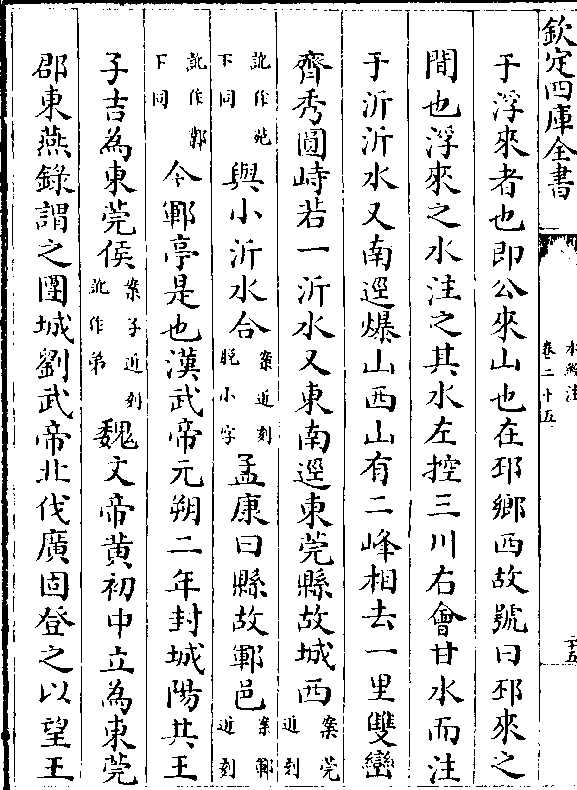 欽定四庫全書
水經注
卷二十五
于浮來者也即公來山也在邳鄉西故號曰邳來之
間也浮來之水注之其水左控三川右會甘水而注
于沂沂水又南逕爆山西山有二峰相去一里雙巒
齊秀圓峙若一沂水又東南逕東莞縣故城西案莞近刻
訛作苑下同與小沂水合案近刻脫小字孟康曰縣故鄆邑案鄆近刻
訛作鄆下同今鄆亭是也漢武帝元朔二年封城陽共王
子吉為東莞侯案子近刻訛作弟魏文帝黄初中立為東莞
郡東燕錄謂之團城劉武帝北伐廣固登之以望王